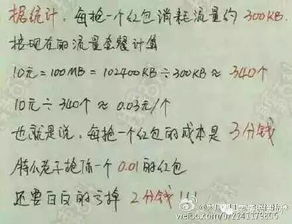 据统计，每抢一个红包消耗流量约 300KB.
按现在的流量套餐计算
10元=100MB=102400KB÷300KB≈340个
10元÷340个≈0.03元/个
也就是说，每抢一个红包的成本是 3分钱
特么老子抢你一个0.01的红包
还要白白的亏掉 2分钱!!!